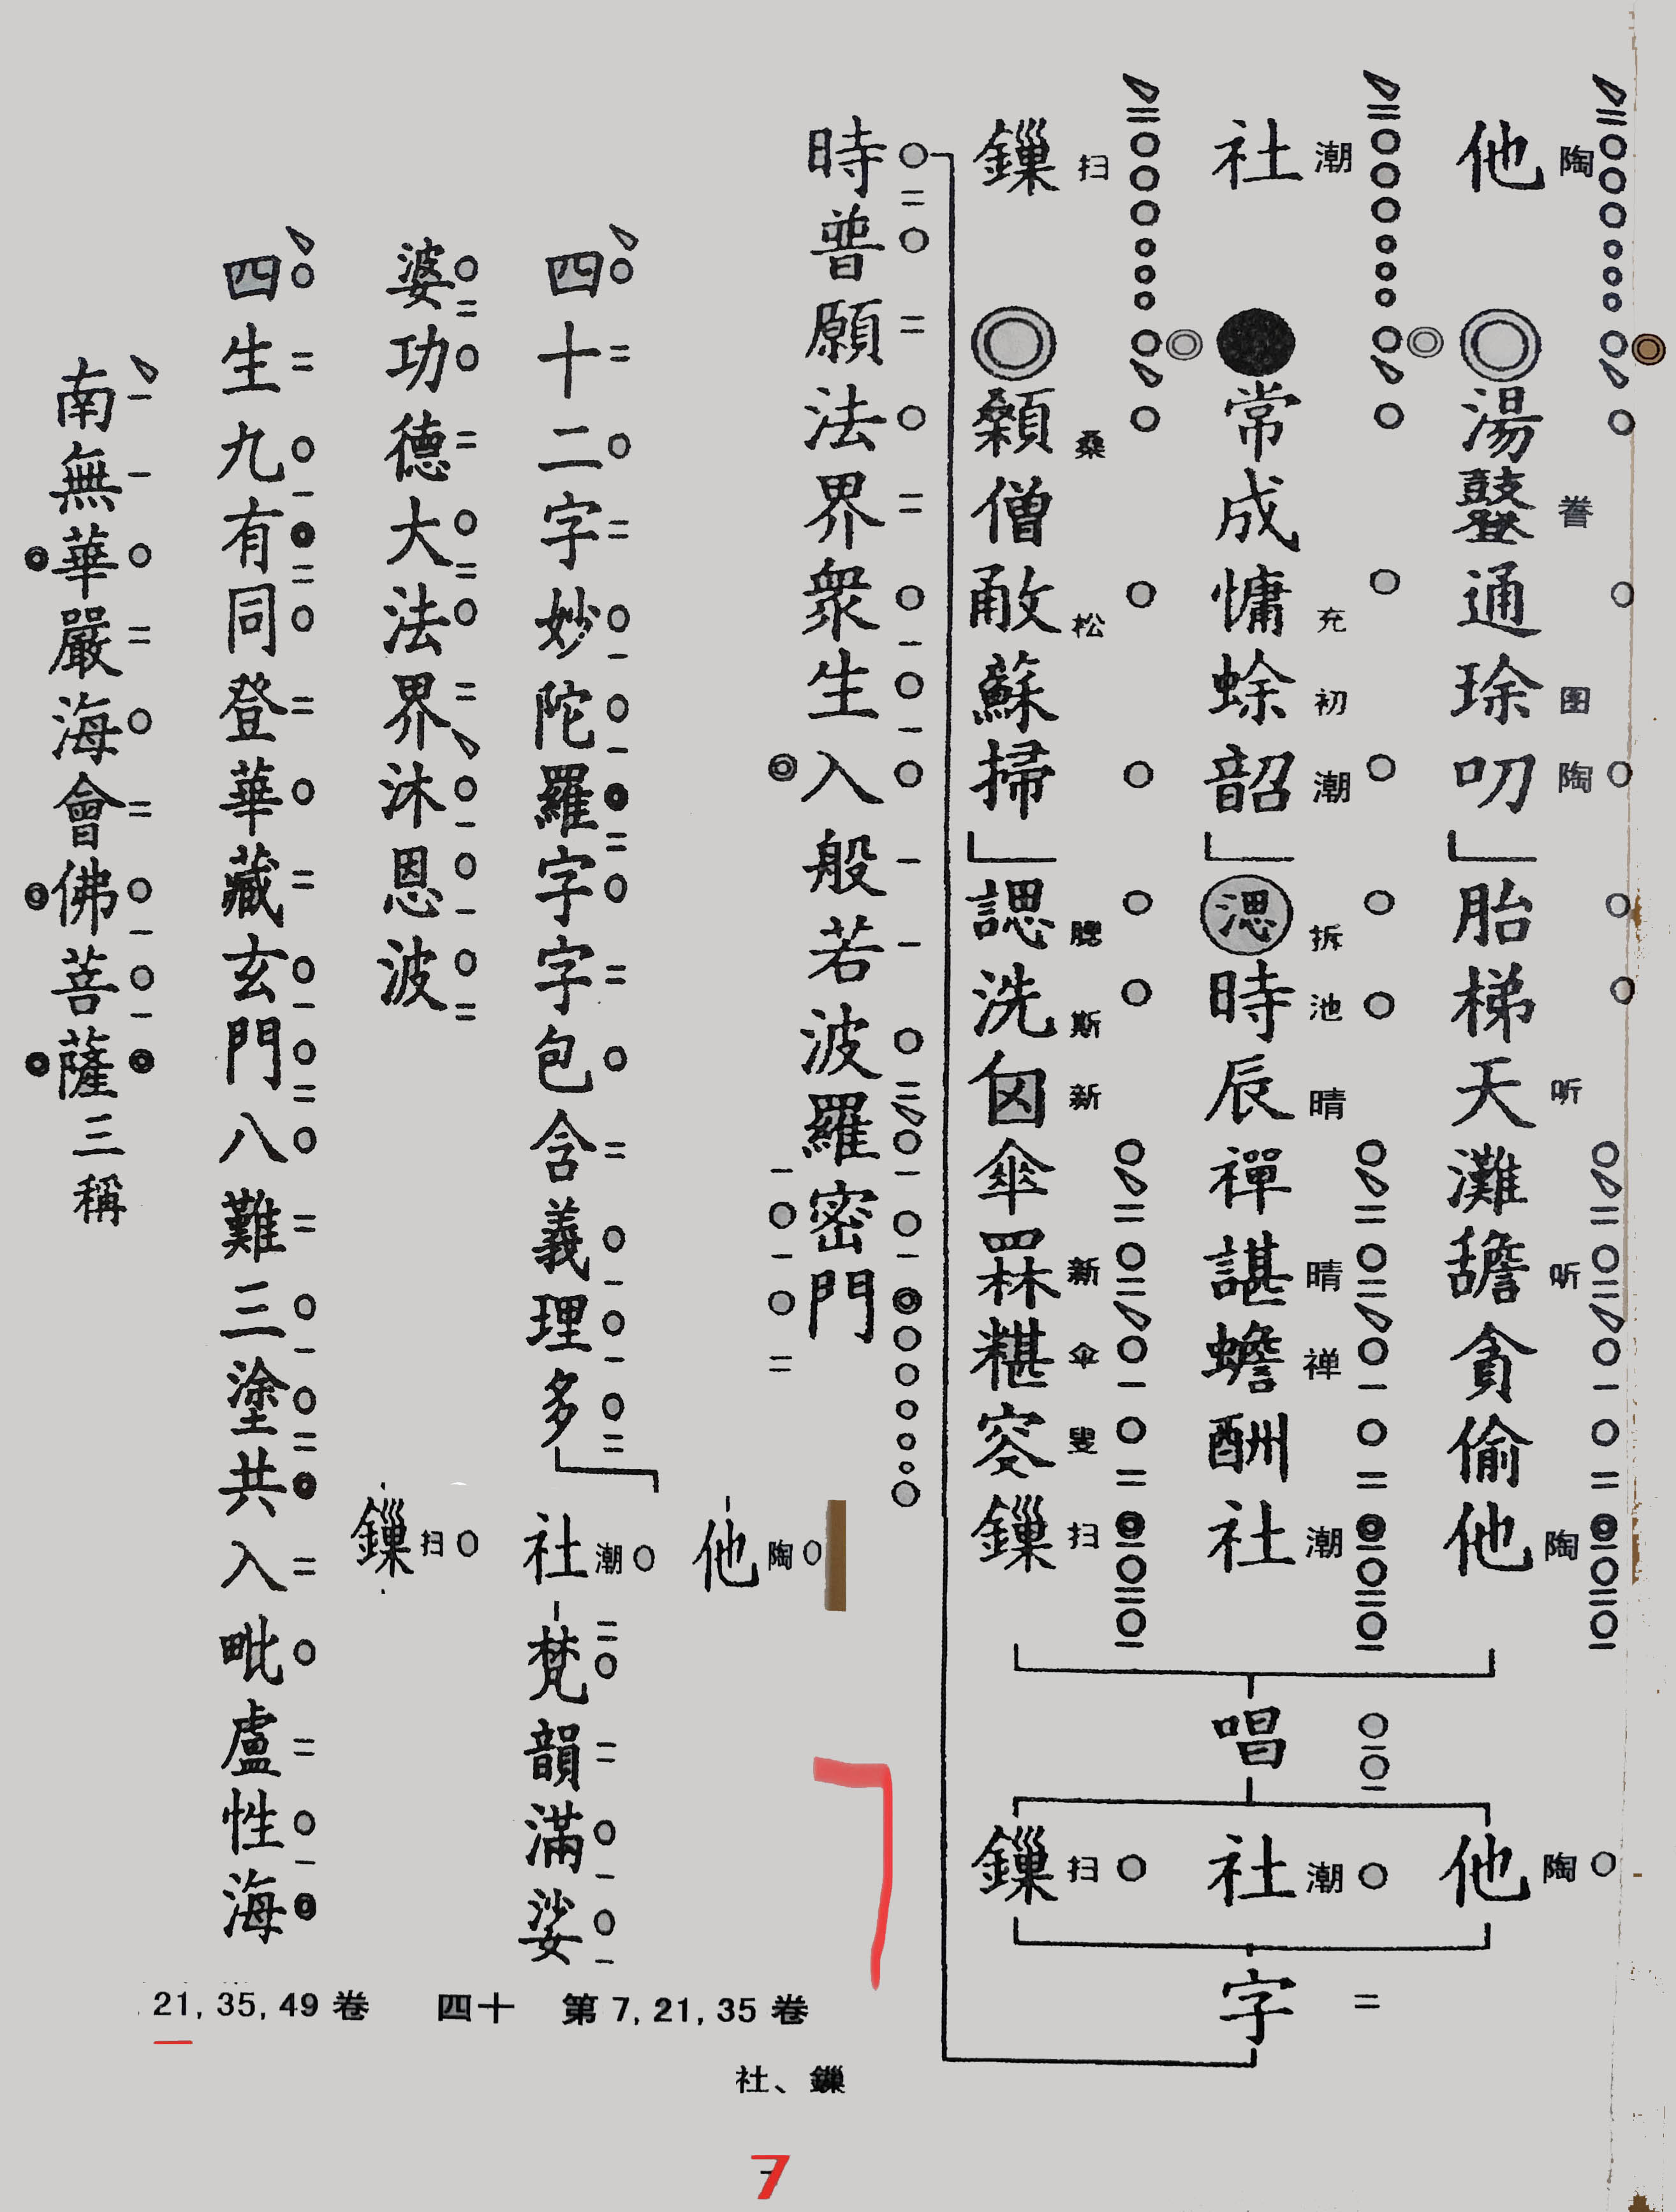 他 湯 通 㻌 叨 胎 梯 天 灘 貪 偷 他
陶 誊 图 陶 听 听 陶
社 常 成 慵 蜍 韶 㴓 時 辰 禪 諶 蟾 酬 社
潮 充 初 潮 拆 池 晴 晴 禅 潮
鏁 顙 僧 蘇 掃 諰 洗 囟 傘 糂 鏁
扫 桑 松 腮 斯 新 新 伞 叟 扫
唱
他 陶
社 潮
鏁 扫
字
時普願法界衆生入般若波羅密門
四十二字妙陀羅字字包含義理多
他 陶
社 潮
鏁 扫
梵韻滿娑
婆功德大法界沐恩波
四生九有同登華藏玄門八難三塗共入毗盧性海
南無華嚴海會佛菩薩三稱
21,35,49 卷 四十 第 7,21,35 卷
社、鏁
7